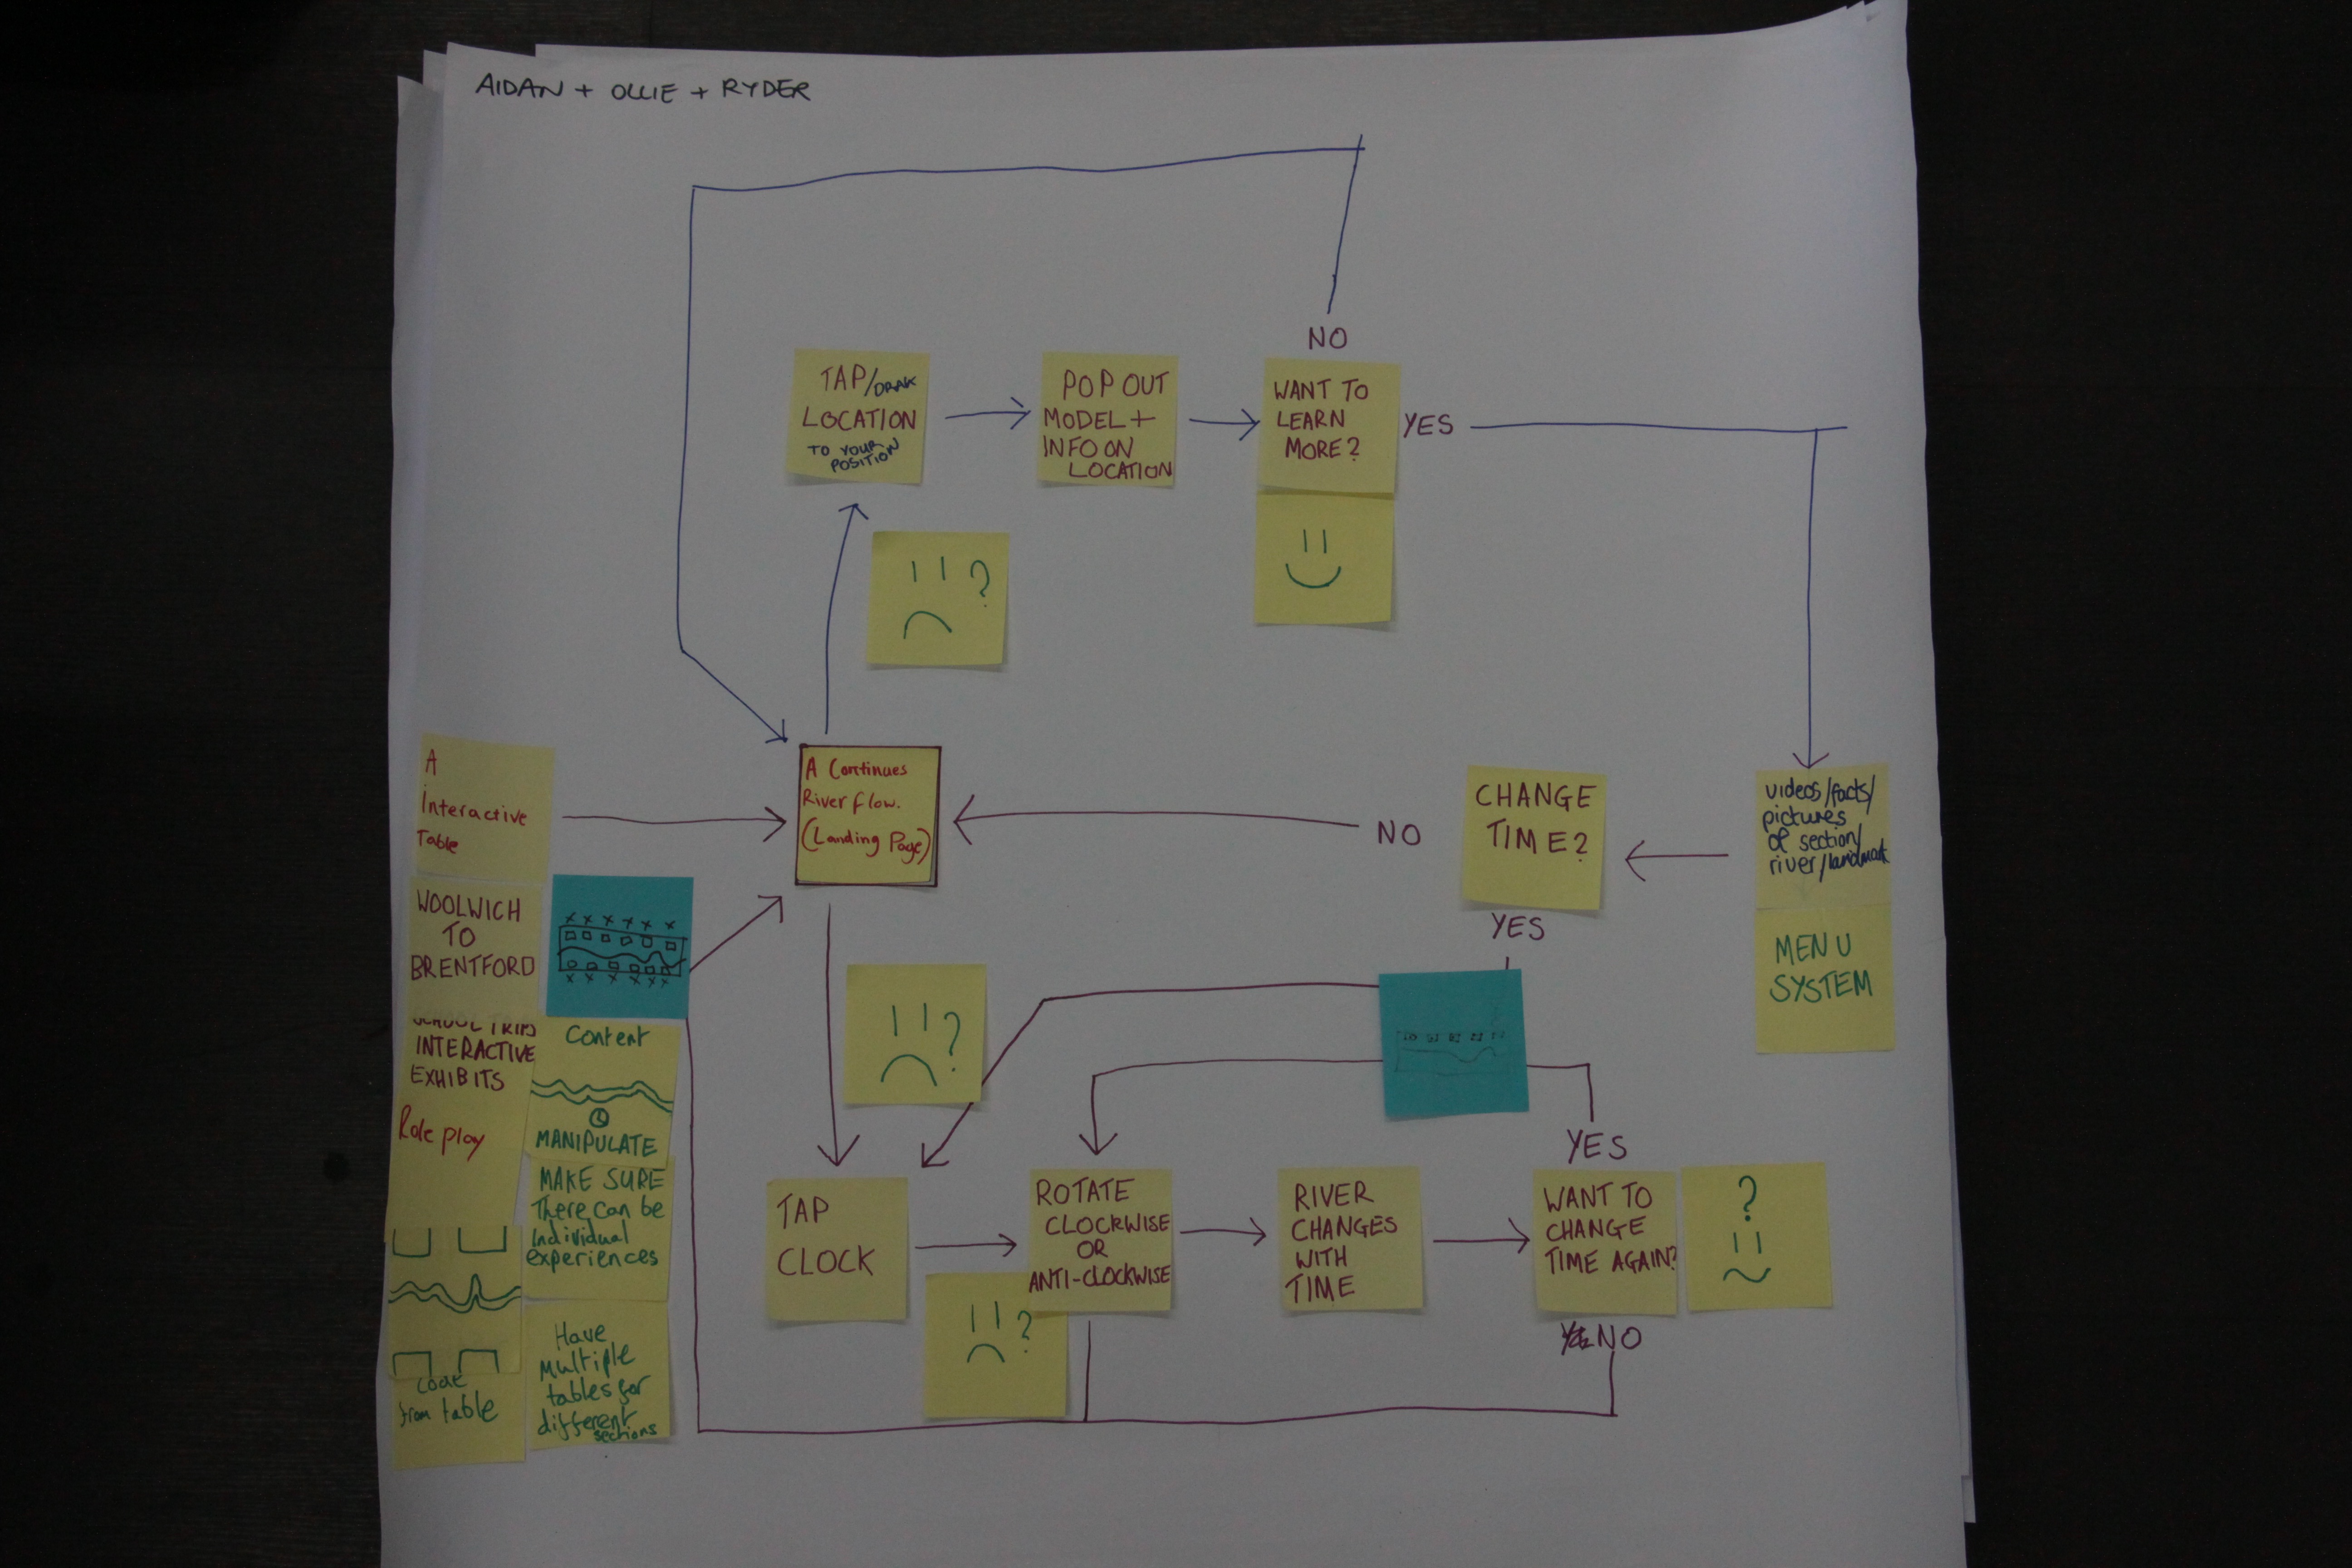 AIDAN + OLLIE + RYDER
NO
TAP/DRAK
LOCATION
TO YOUR
POSITION
POP OUT
MODEL +
INFO ON
LOCATION
WANT TO
LEARN
MORE?
YES
?
A
Interactive
Table
A Continues
River flow.
(Landing Page)
NO
CHANGE
TIME?
YES
videos/facts/
pictures
of section/
river/landmark
MENU
SYSTEM
WOOLWICH
TO
BRENTFORD
SCHOOL TRIPS
INTERACTIVE
EXHIBITS
Role play
Content
MANIPULATE
MAKE SURE
There can be
Individual
experiences
from table
Have
Multiple
tables for
different
sections
?
TAP
CLOCK
?
ROTATE
CLOCKWISE
OR
ANTI-CLOCKWISE
RIVER
CHANGES
WITH
TIME
YES
WANT TO
CHANGE
TIME AGAIN?
NO
?